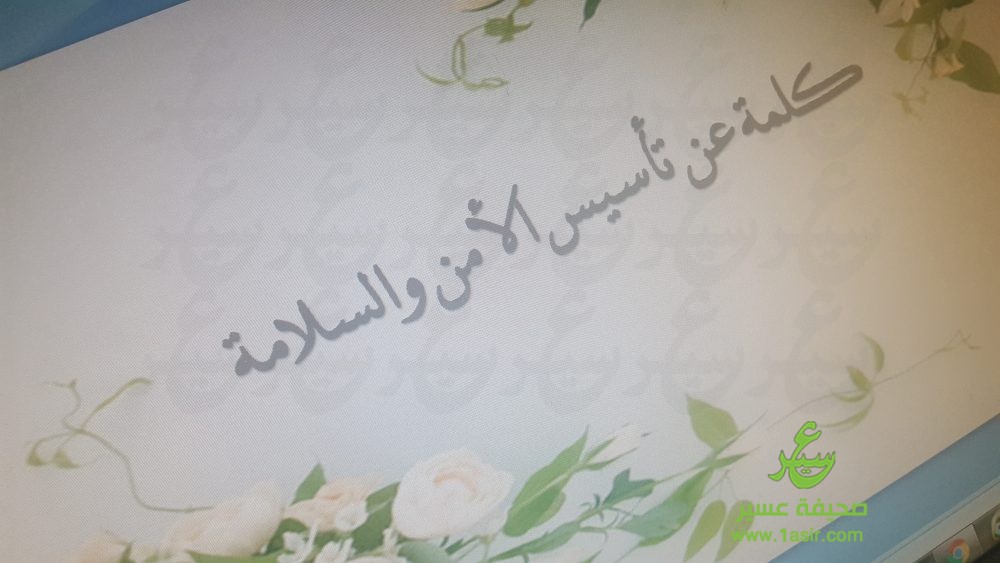 كلمة عن تأسيس الأمن والسلامة
عسير
صحيفة عسير
www.1asir.com